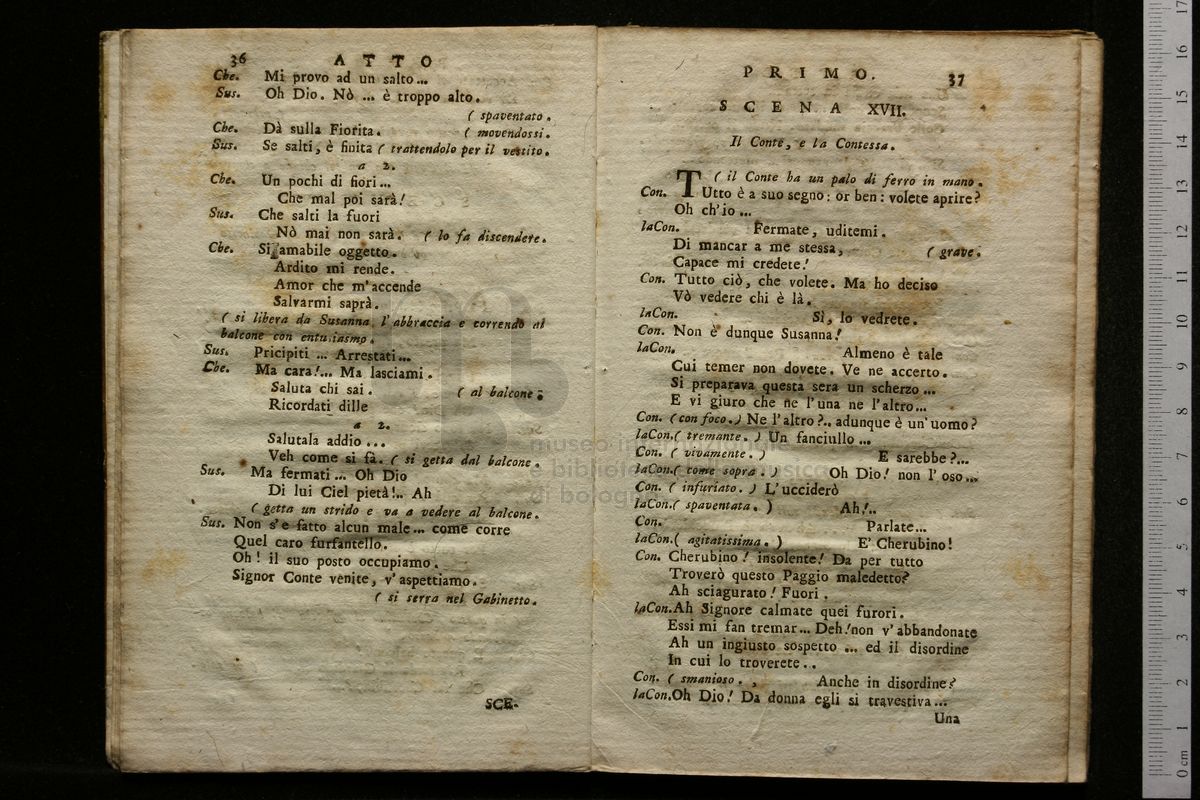 36 ATTO
Che. Mi provo ad un salto...
Sus. Oh Dio. Nò ... è troppo alto.
( spaventato.
Che. Dà sulla Fiorita. ( movendossi.
Sus. Se salti, è finita ( trattendolo per il vestito.
a 2.
Che. Un pochi di fiori...
Che mal poi sarà!
Sus. Che salti la fuori
Nò mai non sarà. ( lo fa discendere.
Che. Sì amabile oggetto.
Ardito mi rende.
Amor che m'accende
Salvarmi saprà.
( si libera da Susanna, l'abbraccia e correndo al
balcone con entusiasmo.
Sus. Pricipiti ... Arrestati...
Che. Ma cara!... Ma lasciami.
Saluta chi sai. ( al balcone:
Ricordati dille
a 2.
Salutala addio ...
Veh come si fà. ( si getta dal balcone.
Sus. Ma fermati... Oh Dio
Di lui Ciel pietà!.. Ah
( getta un strido e va a vedere al balcone.
Sus. Non s'e fatto alcun male... come corre
Quel caro furfantello.
Oh! il suo posto occupiamo.
Signor Conte venite, v'aspettiamo.
( si serra nel Gabinetto.
SCE-
PRIMO. 37
SCENA XVII.
Il Conte, e la Contessa.
( il Conte ha un palo di ferro in mano.
Con. TUtto è a suo segno: or ben: volete aprire?
Oh ch'io ...
laCon. Fermate, uditemi.
Di mancar a me stessa, ( grave.
Capace mi credete!
Con. Tutto ciò, che volete. Ma ho deciso
Vò vedere chi è là.
laCon. Sì, lo vedrete.
Con. Non è dunque Susanna!
laCon. Almeno è tale
Cui temer non dovete. Ve ne accerto.
Si preparava questa sera un scherzo ...
E vi giuro che ne l'una ne l'altro...
Con. (con foco.) Ne l'altro?.. adunque è un'uomo?
laCon.( tremante. ) Un fanciullo ...
Con. ( vivamente. ) E sarebbe?...
laCon.( come sopra. ) Oh Dio! non l'oso...
Con. ( infuriato. ) L'ucciderò
laCon.( spaventata. ) Ah!..
Con. Parlate...
laCon.( agitatissima. ) E' Cherubino!
Con. Cherubino! insolente! Da per tutto
Troverò questo Paggio maledetto?
Ah sciagurato! Fuori.
laCon.Ah Signore calmate quei furori.
Essi mi fan tremar... Deh! non v'abbandonate
Ah un ingiusto sospetto ... ed il disordine
In cui lo troverete..
Con. ( smanioso. , Anche in disordine?
laCon.Oh Dio! Da donna egli si travestiva...
Una
museo internazionale
e biblioteca della musica
di bologna